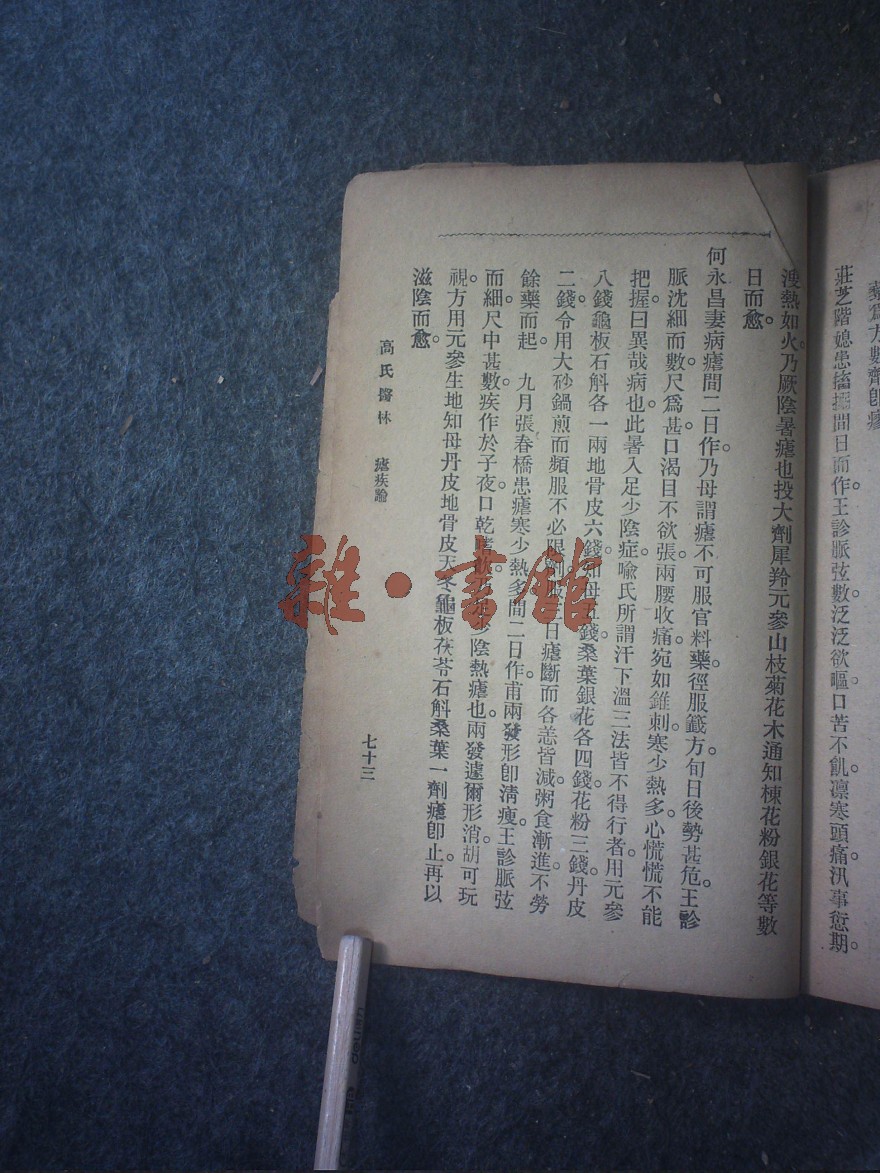 藥爲方數劑卽瘳
莊芝階媳患搐搦間日而作。王診脈弦數泛泛欲嘔。口苦不飢凛寒頭痛汛事愆期。
溲熱如火。乃厥陰暑瘧也投大劑犀羚元參山枝菊花木通知楝花粉銀花等數
日而愈。
何永昌妻病瘧間二日作。乃母謂瘧不可服官料藥。徑服籤方。旬日後勢甚危。王診
脈沈細而數。尺爲甚口渴目不欲張。兩腰收痛。宛如錐刺。寒少熱多。心慌慌不能
把握。曰異哉病也此暑入足少陰症。喩氏所謂汗下溫三法皆不得行者。用元參
八錢龜板石斛各一兩地骨皮六錢。知母五錢。桑葉銀花各四錢。花粉三錢。丹皮
二錢。令用大砂鍋煎而頻服不必限劑服三日瘧斷而各恙皆減。粥食漸進。不勞
餘藥而起　九月張春橋患瘧寒少熱多。間二日作。甫兩發形卽淸瘦。王診脈弦
而細。尺中甚數。疾作於子夜。口乾嗜飲乃足少陰熱瘧也。兩發遽爾形消。胡可玩
視。方用元參生地知母丹皮地骨皮天冬龜板茯苓石斛桑葉一劑瘧卽止。再以
滋陰而愈。
高氏醫林　瘧疾論
七十三
雜·書館